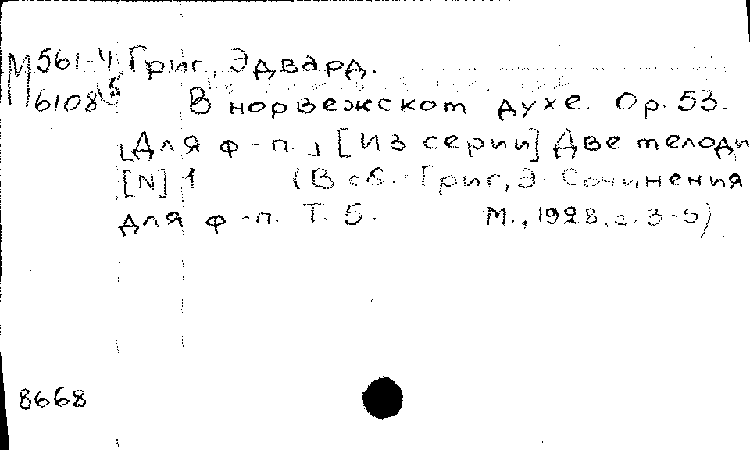 М 561-4 Григ, Эдвард.
6108 В норвежском духе. Op. 53.
[Для ф-п.] [Из серии] Две мелоди
[N] 1 (В сб. Григ, Э. Сочинения
для ф-п. Т. 5. М., 1928, с. 3-5)
8668